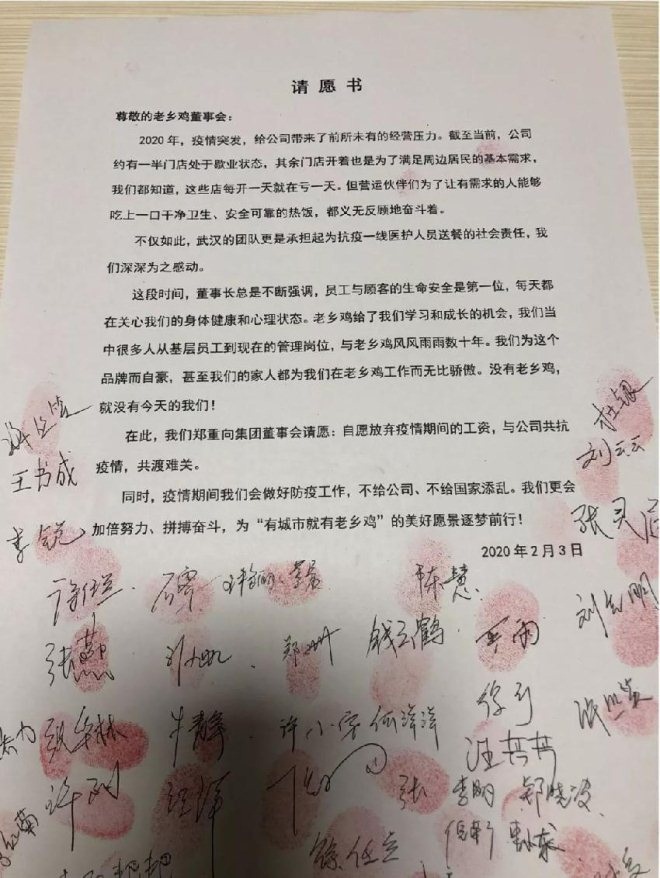 请愿书
尊敬的老乡鸡董事会：
2020 年，疫情突发，给公司带来了前所未有的经营压力。截至当前，公司
约有一半门店处于歇业状态，其余门店开着也是为了满足周边居民的基本需求，
我们都知道，这些店每开一天就在亏一天。但营运伙伴们为了让有需求的人能够
吃上一口干净卫生、安全可靠的热饭，都义无反顾地奋斗着。
不仅如此，武汉的团队更是承担起为抗疫一线医护人员送餐的社会责任，我
们深深为之感动。
这段时间，董事长总是不断强调，员工与顾客的生命安全是第一位，每天都
在关心我们的身体健康和心理状态。老乡鸡给了我们学习和成长的机会，我们当
中很多人从基层员工到现在的管理岗位，与老乡鸡风风雨雨数十年。我们为这个
品牌而自豪，甚至我们的家人都为我们在老乡鸡工作而无比骄傲。没有老乡鸡，
就没有今天的我们！
在此，我们郑重向集团董事会请愿：自愿放弃疫情期间的工资，与公司共抗
疫情，共渡难关。
同时，疫情期间我们会做好防疫工作，不给公司、不给国家添乱。我们更会
加倍努力、拼搏奋斗，为“有城市就有老乡鸡”的美好愿景逐梦前行！
2020 年 2 月 3 日
杜银
刘云云
王书成
李锐
陈慧
张燕 郑州 钱玉鹤
牛静 许小宗 何洋洋
汪芳芳
张 李明 郑晓波
徐任立